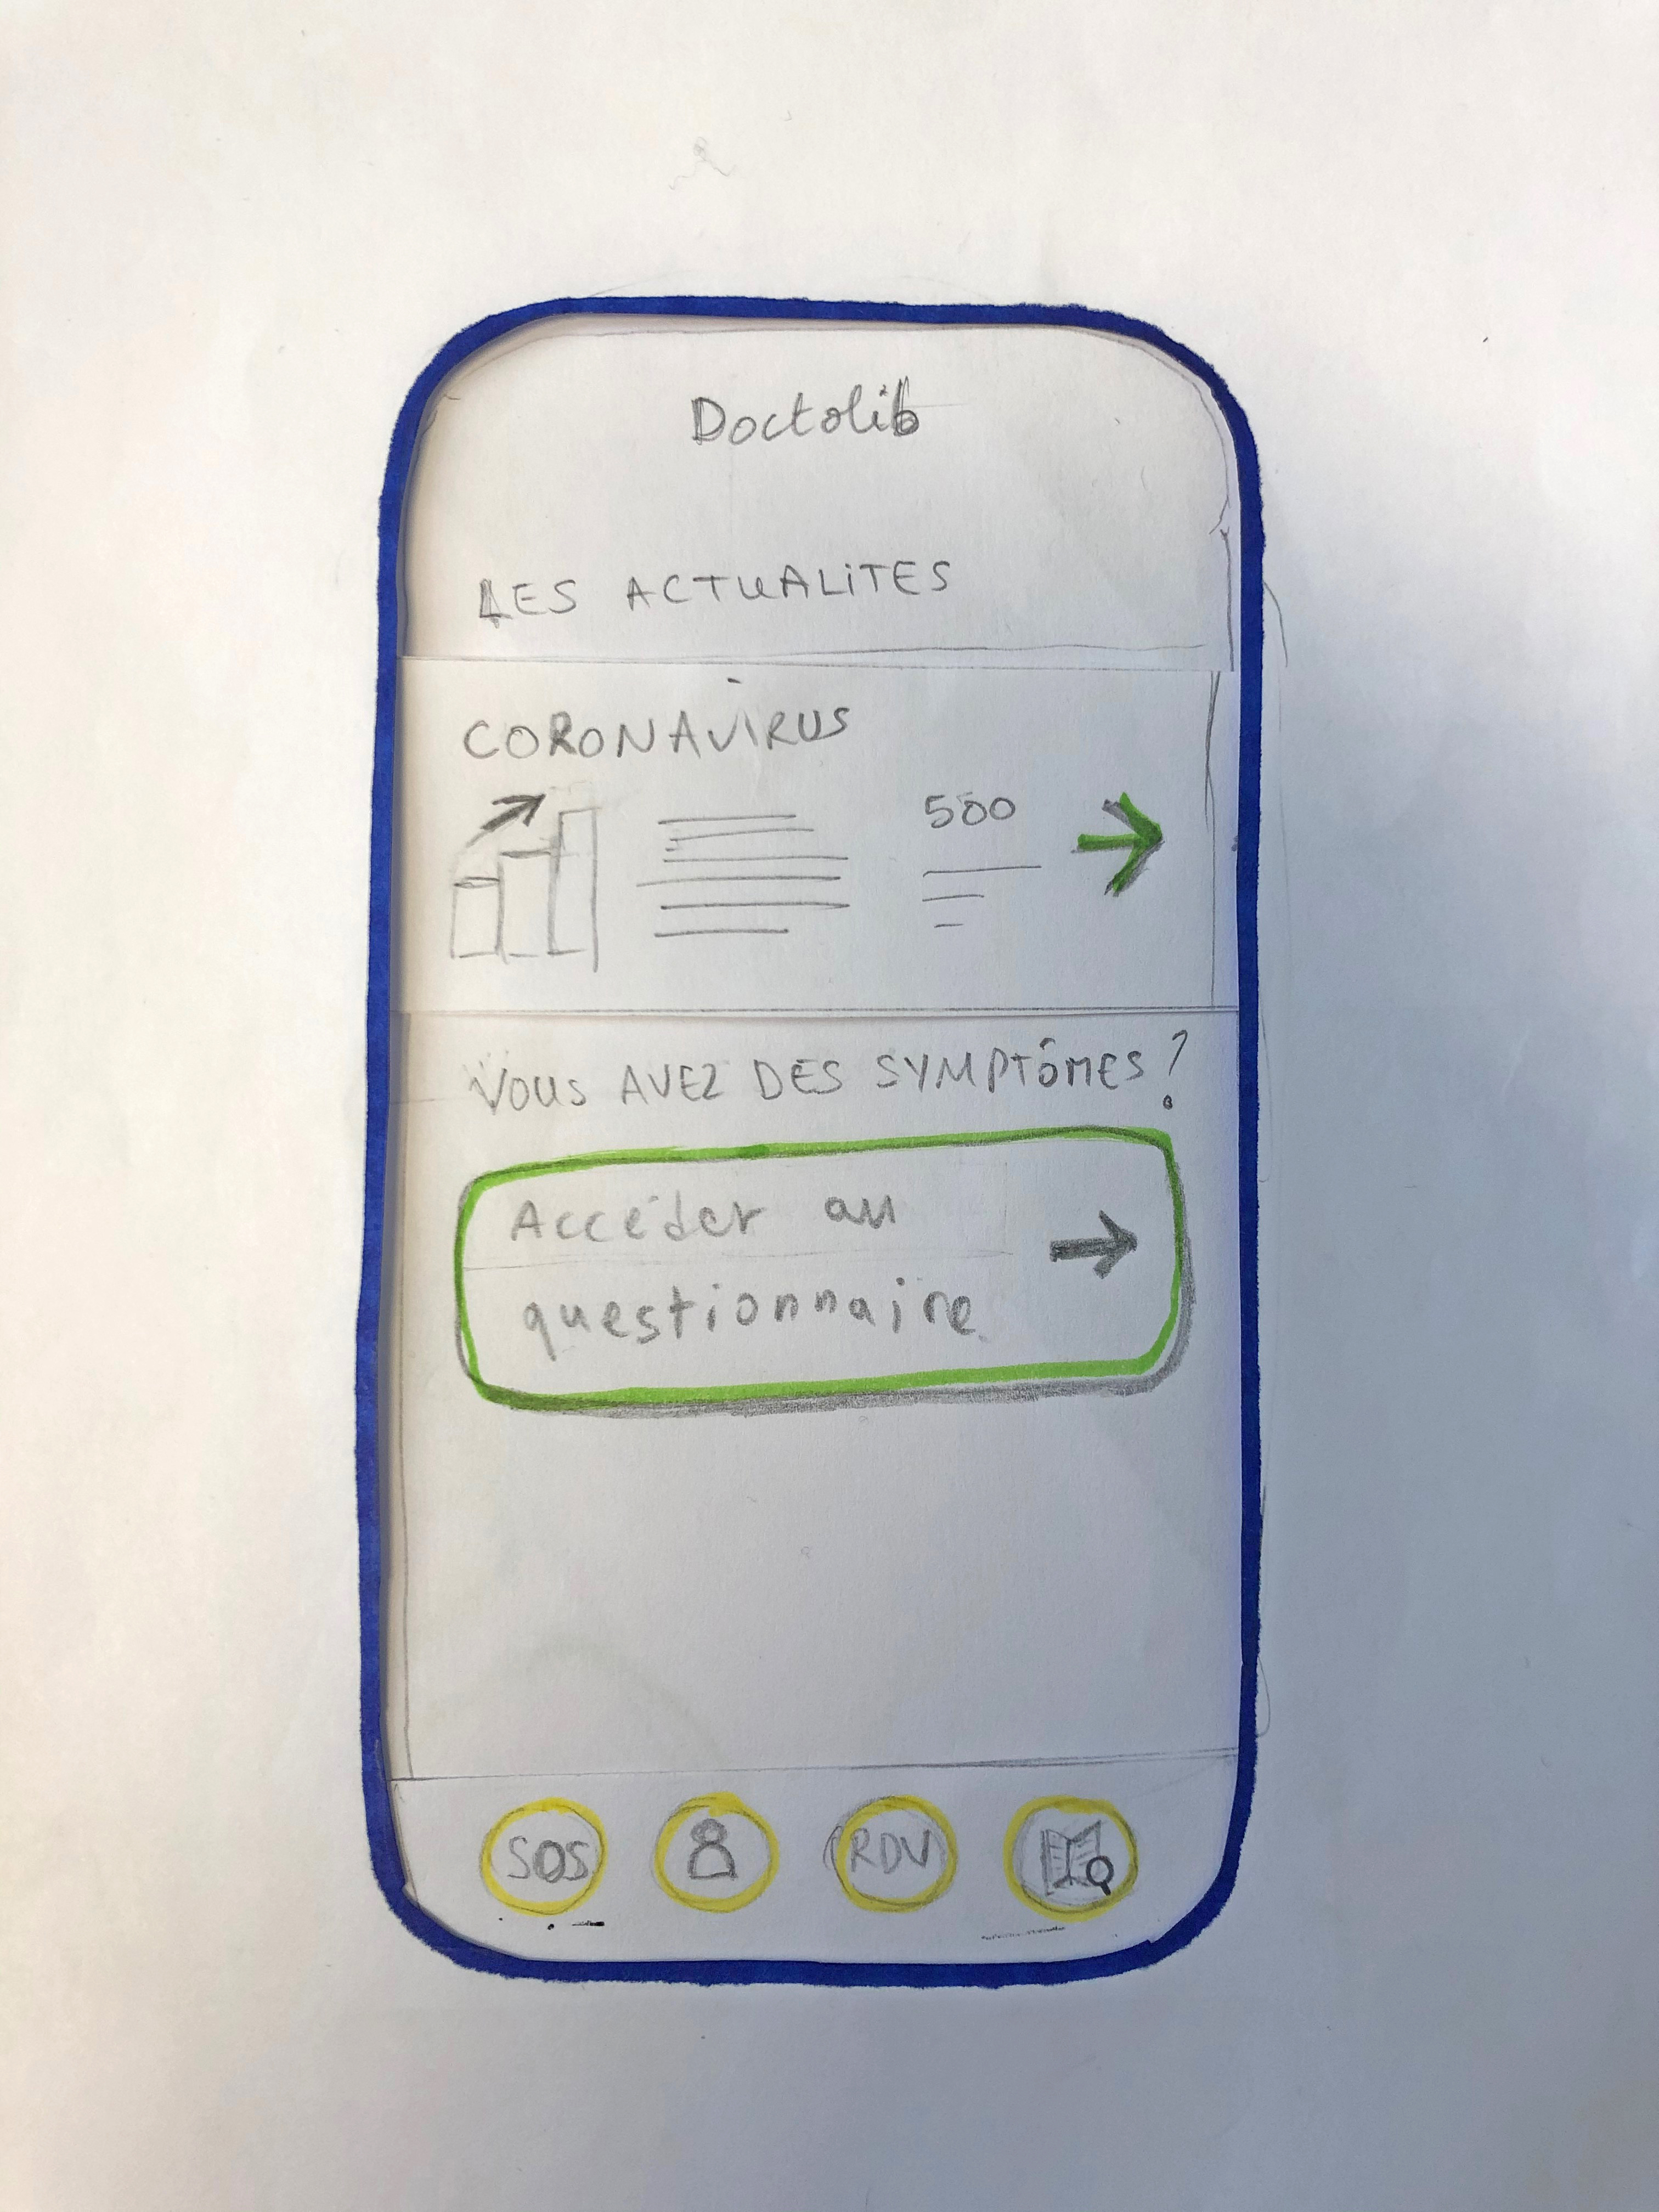 Doctolib
LES ACTUALITES
CORONAVIRUS
500
VOUS AVEZ DES SYMPTÔMES ?
Accéder au
questionnaire
SOS
RDV